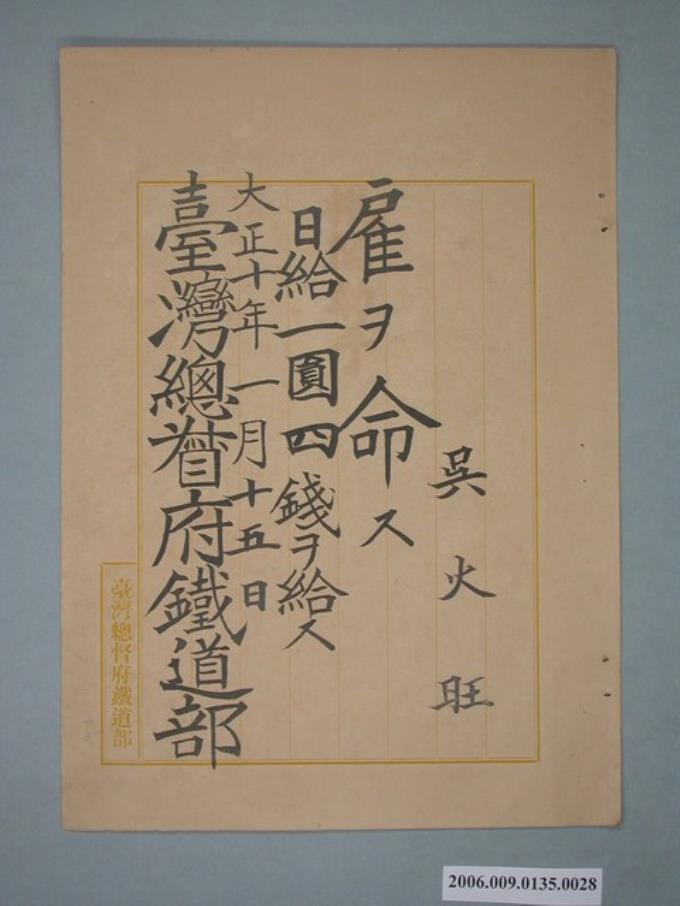 吳火旺
雇ヲ命ス
日給一圓四錢ヲ給ス
大正十年一月十五日
臺灣總督府鐵道部
臺灣總督府鐵道部
2006.009.0135.0028